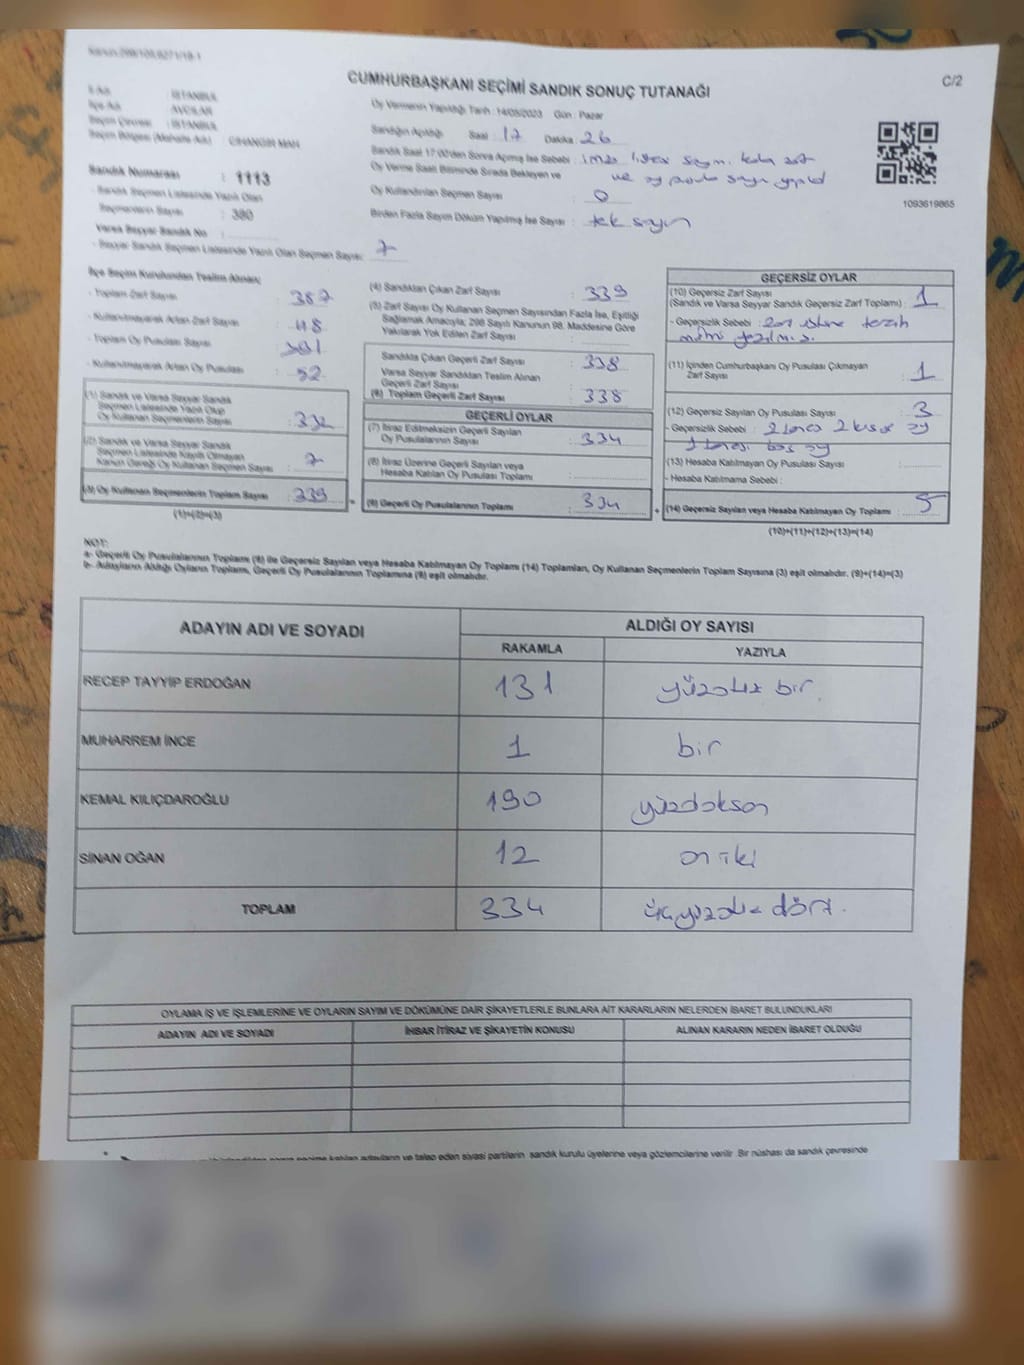 Kanun:298/105,6271/19-1
C/2
CUMHURBAŞKANI SEÇİMİ SANDIK SONUÇ TUTANAĞI
İl Adı : İSTANBUL
İlçe Adı : AVCILAR
Seçim Çevresi : İSTANBUL
Seçim Bölgesi (Mahalle Adı) : CİHANGİR MAH
Sandık Numarası : 1113
- Sandık Seçmen Listesinde Yazılı Olan
Seçmenlerin Sayısı : 380
Varsa Seyyar Sandık No :
- Seyyar Sandık Seçmen Listesinde Yazılı Olan Seçmen Sayısı: 7
Oy Vermenin Yapıldığı Tarih : 14/05/2023 Gün : Pazar
Sandığın Açıldığı Saat : 17 Dakika : 26
Sandık Saat 17:00'den Sonra Açılmış İse Sebebi : imza listesi sayım
Oy Verme Saati Bitiminde Sırada Bekleyen ve ve oy pusula sayım yapıldı
Oy Kullandırılan Seçmen Sayısı : 0
Birden Fazla Sayım Döküm Yapılmış İse Sayısı : tek sayım
1093619865
İlçe Seçim Kurulundan Teslim Alınan;
- Toplam Zarf Sayısı : 387
- Kullanılmayarak Artan Zarf Sayısı : 48
- Toplam Oy Pusulası Sayısı : 391
- Kullanılmayarak Artan Oy Pusulası : 52
(1) Sandık ve Varsa Seyyar Sandık
Seçmen Listesinde Yazılı Olup
Oy Kullanan Seçmenlerin Sayısı : 332
(2) Sandık ve Varsa Seyyar Sandık
Seçmen Listesinde Kayıtlı Olmayan
Kanun Gereği Oy Kullanan Seçmen Sayısı : 7
(3) Oy Kullanan Seçmenlerin Toplam Sayısı : 339
(1)+(2)=(3)
(4) Sandıktan Çıkan Zarf Sayısı : 339
(5) Zarf Sayısı Oy Kullanan Seçmen Sayısından Fazla İse, Eşitliği
Sağlamak Amacıyla, 298 Sayılı Kanunun 98. Maddesine Göre
Yakılarak Yok Edilen Zarf Sayısı :
Sandıkta Çıkan Geçerli Zarf Sayısı : 338
Varsa Seyyar Sandıktan Teslim Alınan
Geçerli Zarf Sayısı :
(6) Toplam Geçerli Zarf Sayısı : 338
GEÇERLİ OYLAR
(7) İtiraz Edilmeksizin Geçerli Sayılan
Oy Pusulalarının Sayısı : 334
(8) İtiraz Üzerine Geçerli Sayılan veya
Hesaba Katılan Oy Pusulası Toplamı :
(9) Geçerli Oy Pusulalarının Toplamı : 334
GEÇERSİZ OYLAR
(10) Geçersiz Zarf Sayısı
(Sandık ve Varsa Seyyar Sandık Geçersiz Zarf Toplamı) : 1
- Geçersizlik Sebebi : zarf üstüne tercih
mührü
(11) İçinden Cumhurbaşkanı Oy Pusulası Çıkmayan
Zarf Sayısı : 1
(12) Geçersiz Sayılan Oy Pusulası Sayısı : 3
- Geçersizlik Sebebi : 2 tanesi 2 kişiye oy
1 tanesi boş oy
(13) Hesaba Katılmayan Oy Pusulası Sayısı :
- Hesaba Katılmama Sebebi :
(14) Geçersiz Sayılan veya Hesaba Katılmayan Oy Toplamı : 5
(10)+(11)+(12)+(13)=(14)
NOT:
a- Geçerli Oy Pusulalarının Toplamı (9) ile Geçersiz Sayılan veya Hesaba Katılmayan Oy Toplamı (14) Toplamları, Oy Kullanan Seçmenlerin Toplam Sayısına (3) eşit olmalıdır. (9)+(14)=(3)
b- Adayların Aldığı Oyların Toplamı, Geçerli Oy Pusulalarının Toplamına (9) eşit olmalıdır.
ADAYIN ADI VE SOYADI ALDIĞI OY SAYISI
RAKAMLA YAZIYLA
RECEP TAYYİP ERDOĞAN 131 yüzotuz bir.
MUHARREM İNCE 1 bir
KEMAL KILIÇDAROĞLU 190 yüzdoksan
SİNAN OĞAN 12 on iki
TOPLAM 334 üçyüzotuz dört.
OYLAMA İŞ VE İŞLEMLERİNE VE OYLARIN SAYIM VE DÖKÜMÜNE DAİR ŞİKAYETLERLE BUNLARA AİT KARARLARIN NELERDEN İBARET BULUNDUKLARI
ADAYIN ADI VE SOYADI İHBAR İTİRAZ VE ŞİKAYETİN KONUSU ALINAN KARARIN NEDEN İBARET OLDUĞU
seçime katılan adayların ve talep eden siyasi partilerin sandık kurulu üyelerine veya gözlemcilerine verilir. Bir nüshası da sandık çevresinde